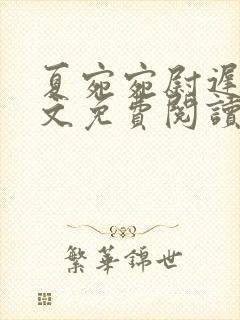 夏宛宛尉遲
文免費閱讀
繁華錦世